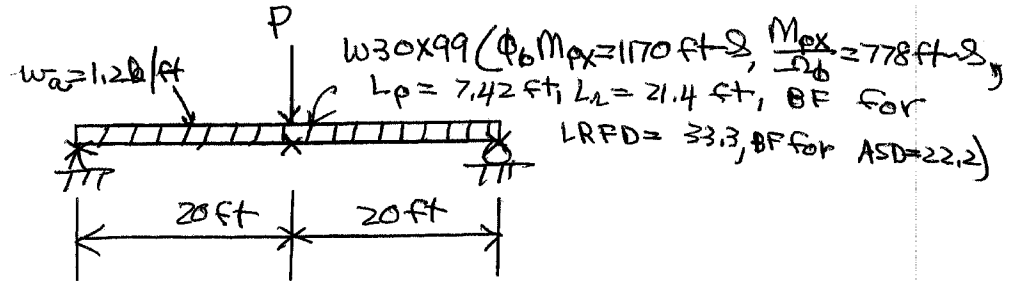 P
W30X99 (ΦbMpx=1170 ft-k, Mpx/Ωb=778 ft-k,
wa=1.2k/ft
Lp= 7.42 ft, Lr= 21.4 ft, BF for
LRFD= 33.3, BF for ASD=22.2)
20ft
20ft